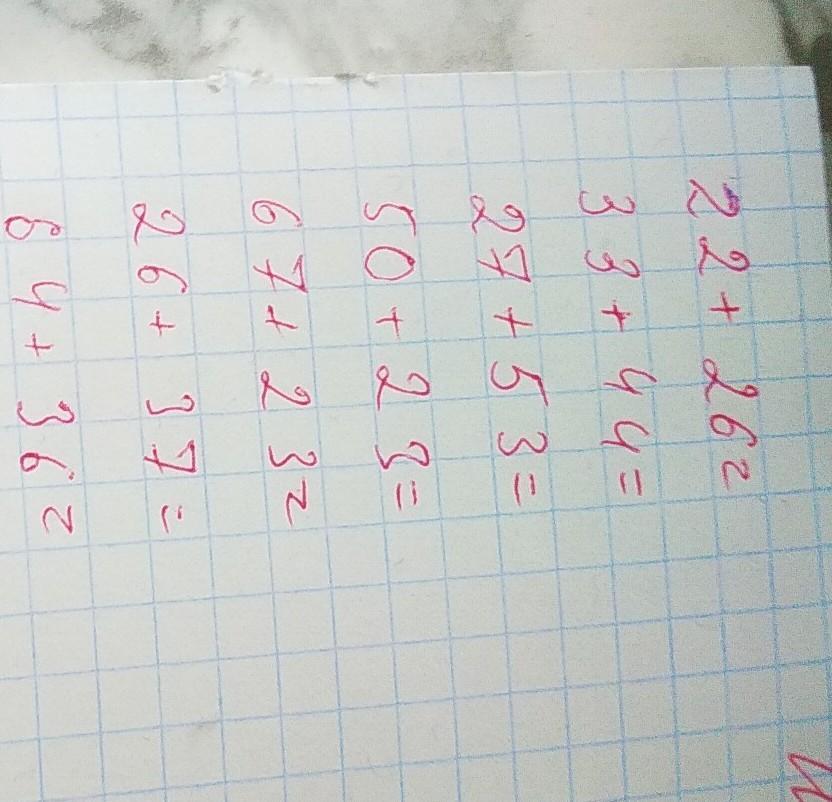 22+26=
33+44=
27+53=
50+23=
67+23=
26+37=
64+36=